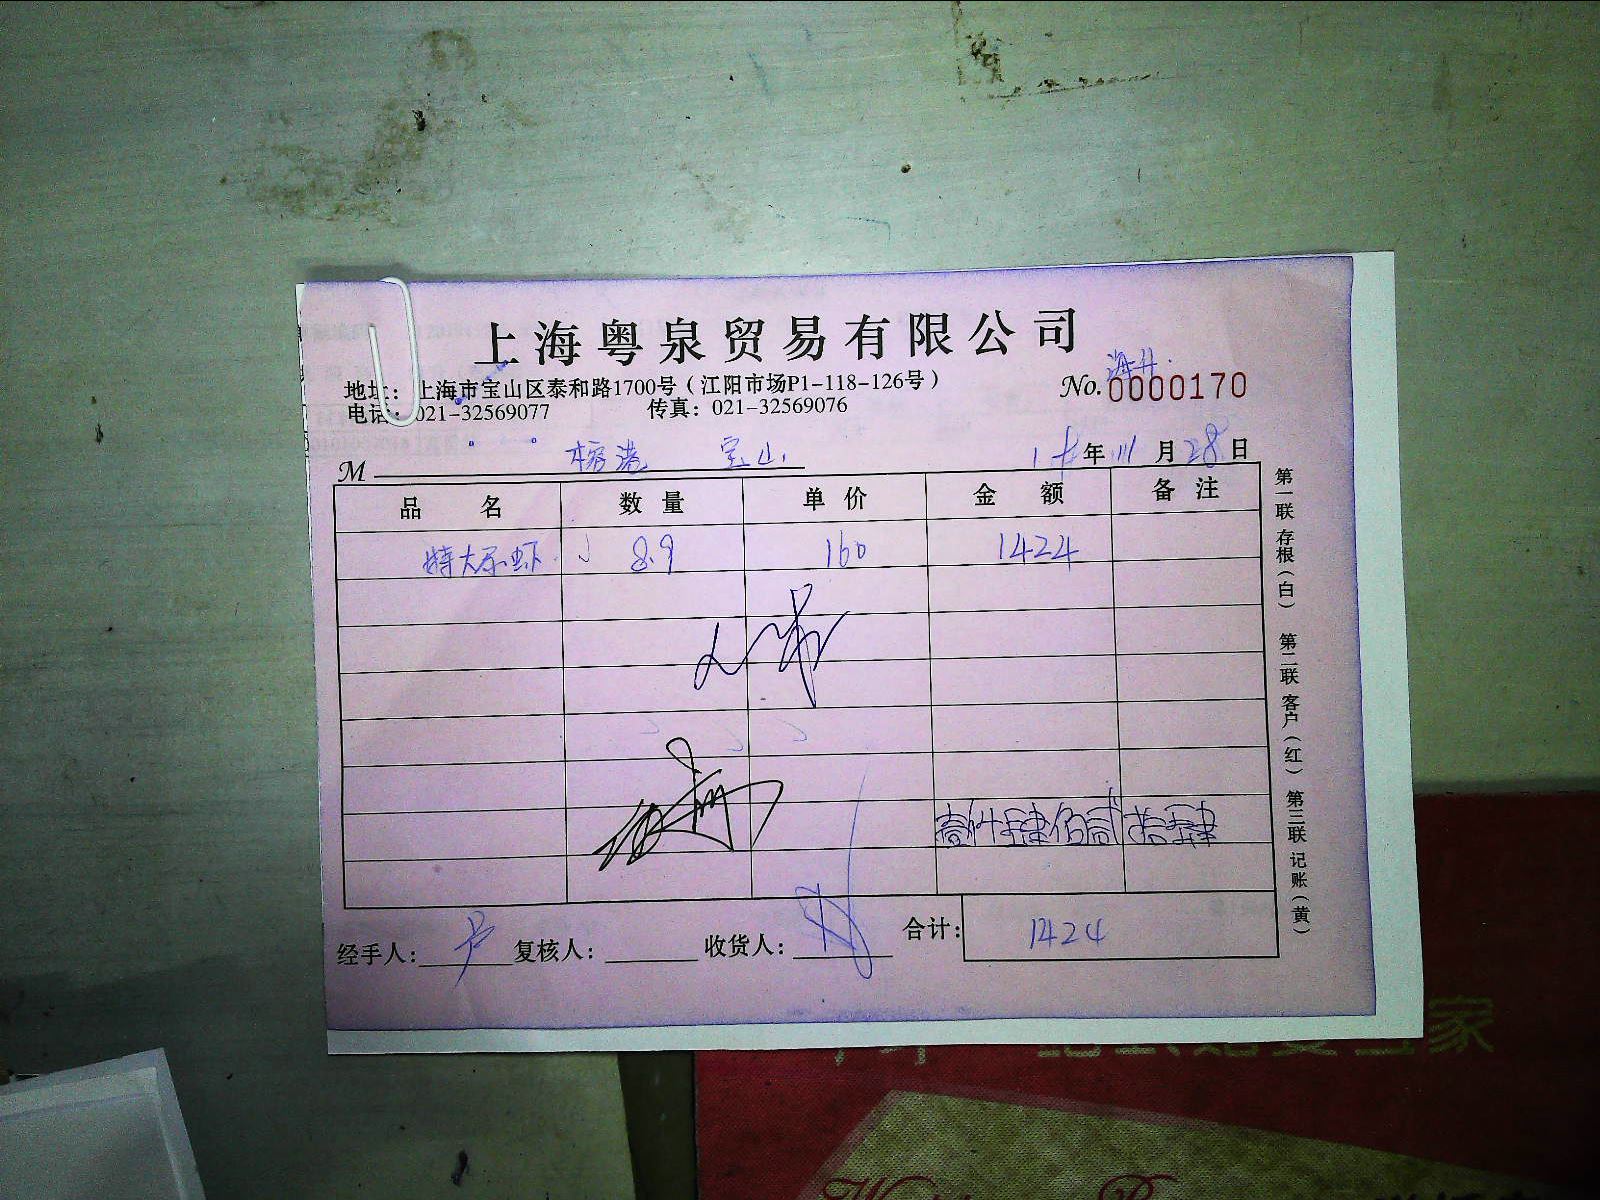 上海粤泉贸易有限公司
地址：上海市宝山区泰和路1700号（江阳市场P1-118-126号）
No.0000170
电话：021-32569077 传真：021-32569076
M 榕港 宝山 年 月 28 日
品名 数量 单价 金额 备注
特大尔虾 8.9 160 1424
壹仟肆佰贰拾肆
经手人： 复核人： 收货人： 合计：1424
第一联 存根（白） 第二联 客户（红） 第三联 记账（黄）
家